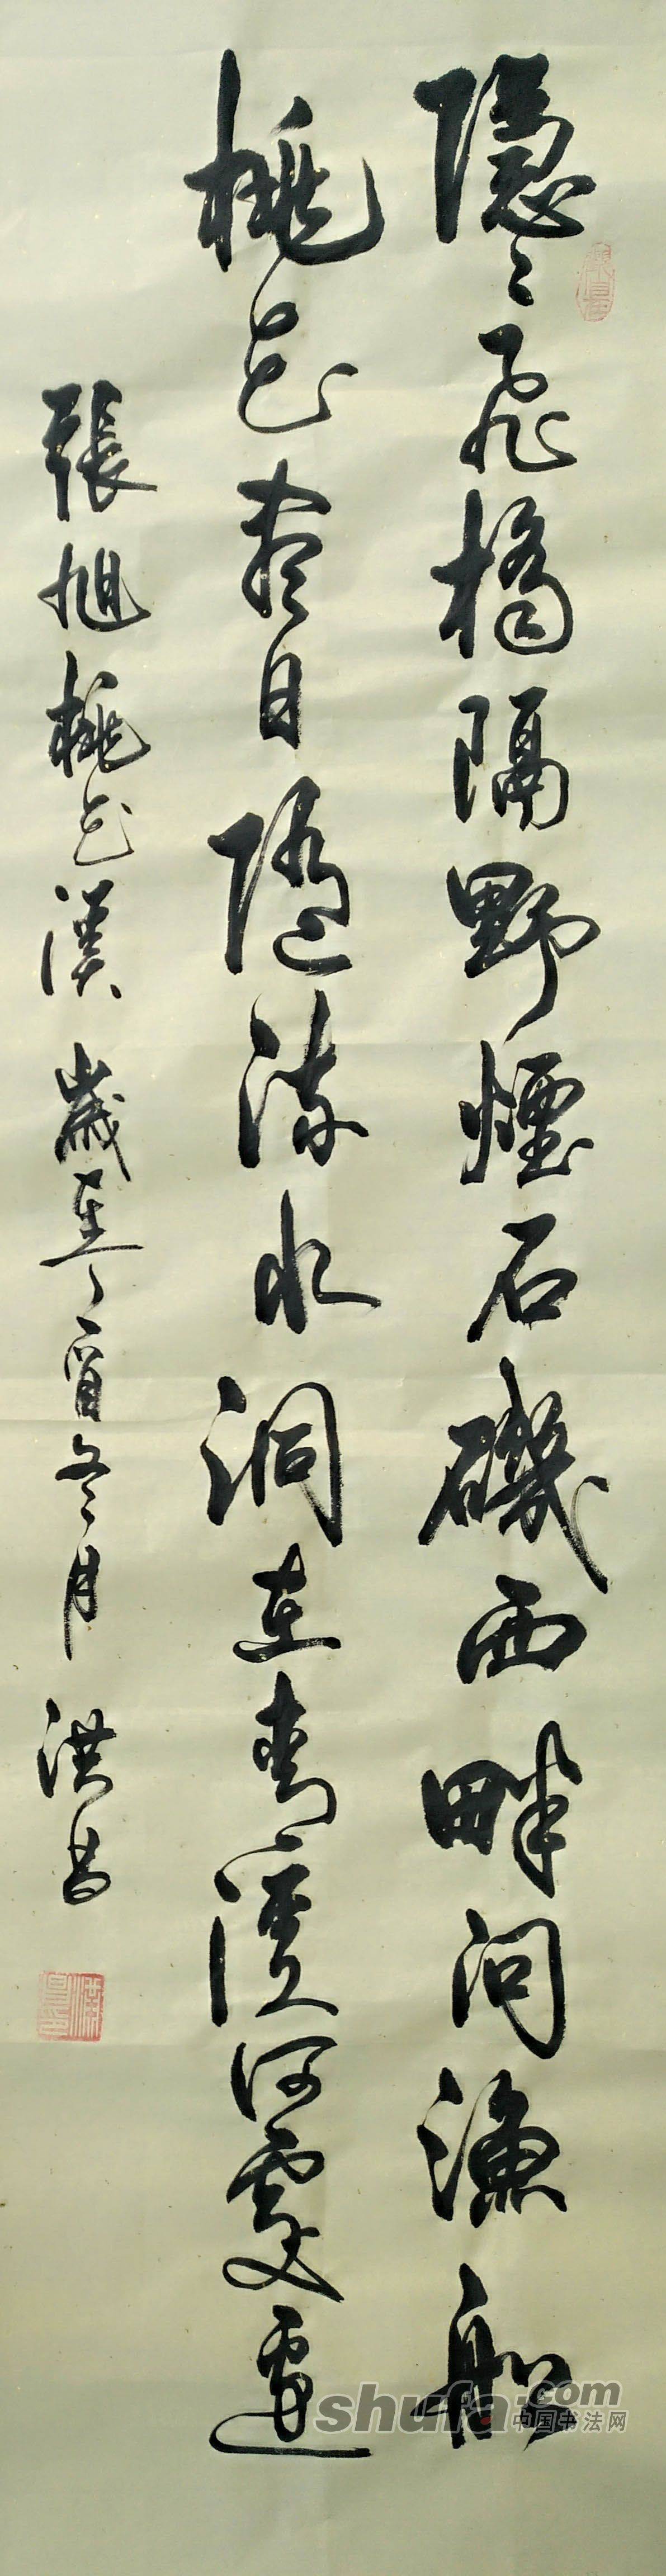 隱々飛橋隔野煙石磯西畔問漁船
桃花盡日隨流水洞在青溪何處邊
張旭桃花溪 歲在丁酉冬月 洪昌
shufa.com
中国书法网